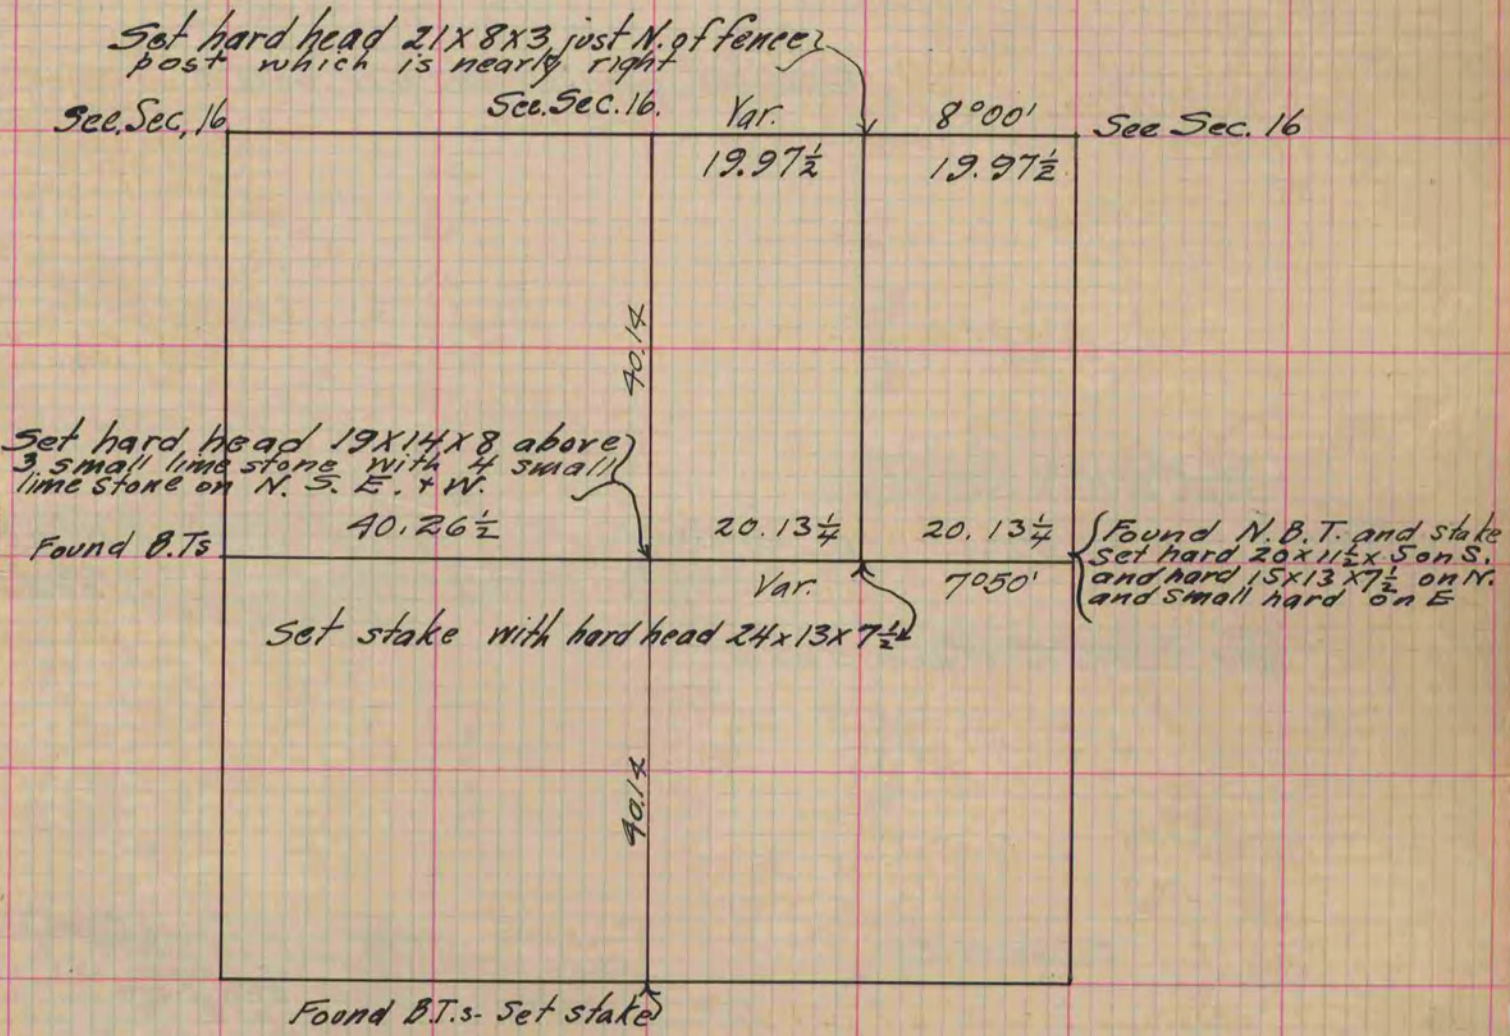 Set hard head 21 x 8 x 3 just N. of fence
post which is nearly right
See. Sec, 16
See. Sec. 16.
Var.
8°00'
See Sec. 16
19.97½
19.97½
40.14
Set hard head 19 x 14 x 8 above
3 small lime stone with 4 small
lime stone on N. S. E. + W.
40.26½
20.13¼
20.13¼
Found B.Ts
Found N.B.T. and stake
Set hard 20 x 11½ x 5 on S.
and hard 15 x 13 x 7½ on N.
and small hard on E
Var.
7°50'
Set stake with hard head 24 x 13 x 7½
40.14
Found B.T.s- Set stake